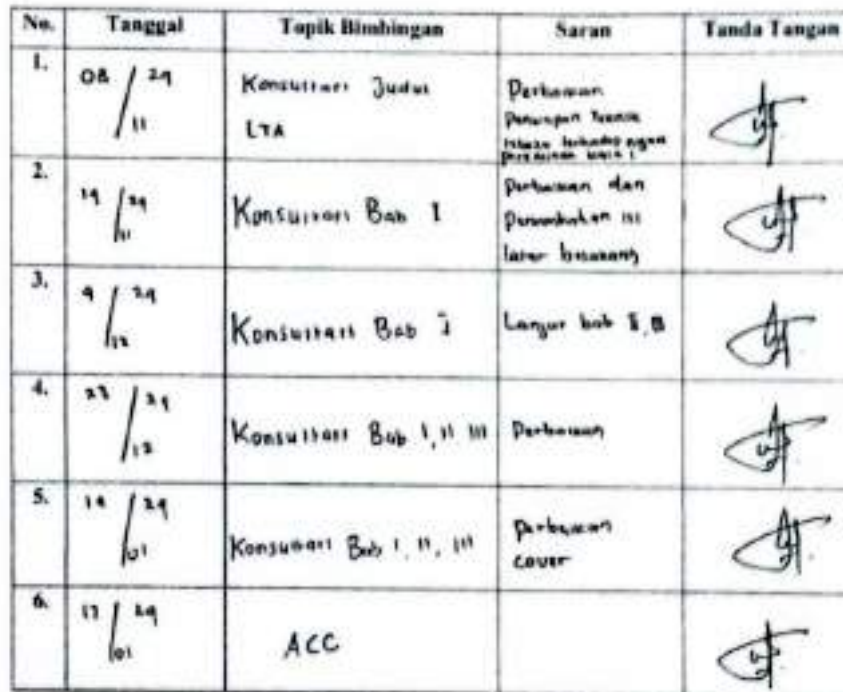 No. Tanggal Topik Bimbingan Saran Tanda Tangan
1. 08/11 24 Konsultasi Judul Perbaikan
LTA Penerapan Teknik
terhadap
2. 19/11 24 Konsultasi Bab I Perbaikan dan
Penambahan isi
latar belakang
3. 9/12 24 Konsultasi Bab I Lanjut bab II, III
4. 23/12 24 Konsultasi Bab I, II III Perbaikan
5. 14/01 24 Konsultasi Bab I, II, III Perbaikan
cover
6. 17/01 24 ACC